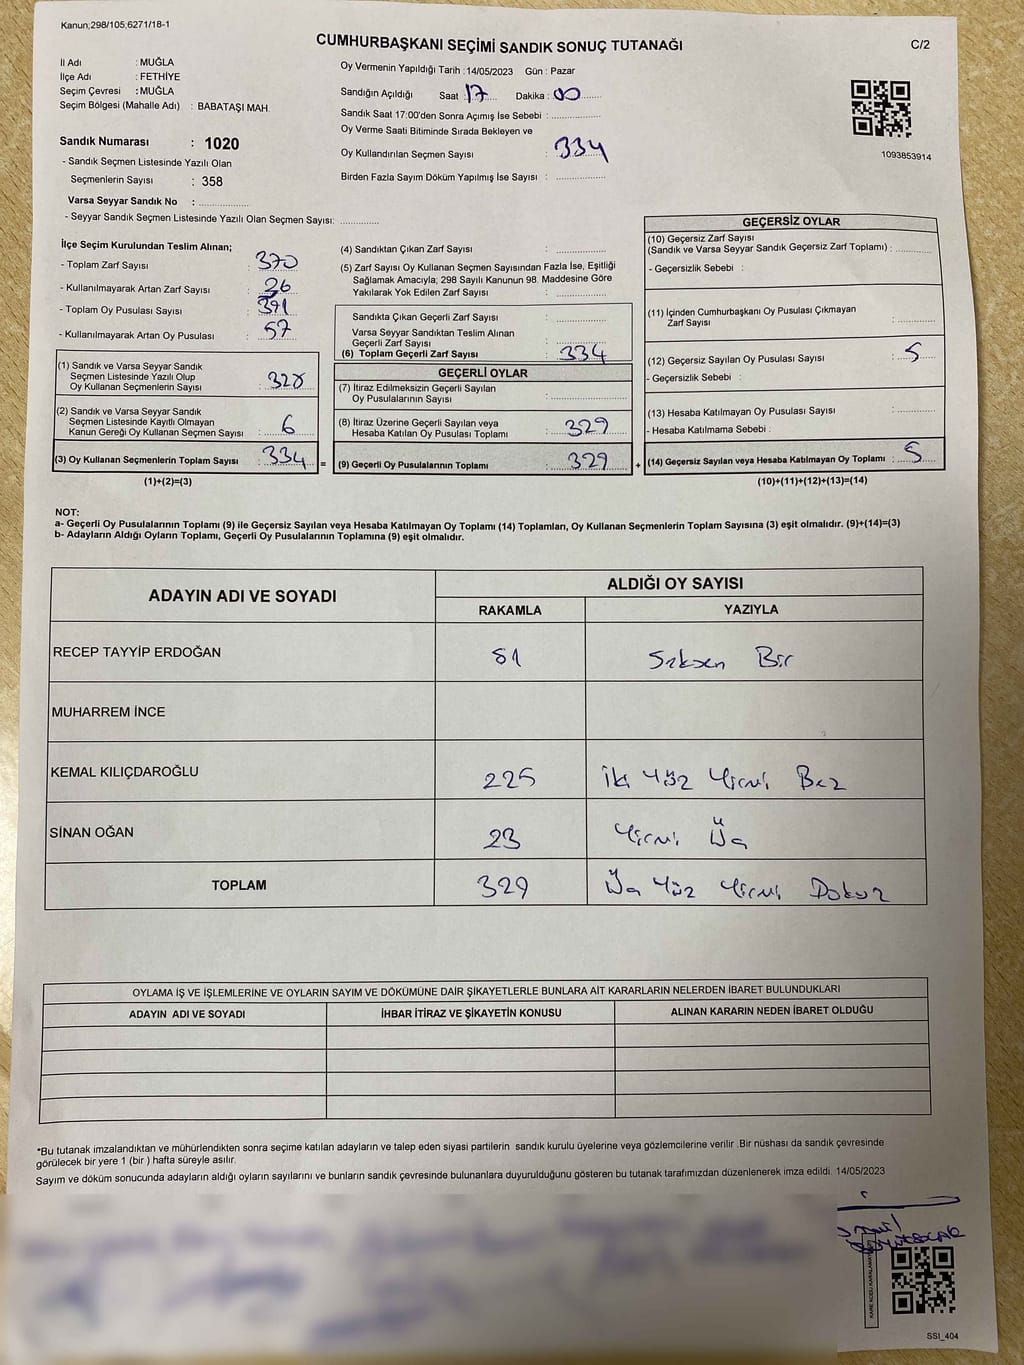 Kanun;298/105;6271/18-1
CUMHURBAŞKANI SEÇİMİ SANDIK SONUÇ TUTANAĞI
C/2
İl Adı : MUĞLA
İlçe Adı : FETHİYE
Seçim Çevresi : MUĞLA
Seçim Bölgesi (Mahalle Adı) : BABATAŞI MAH.
Sandık Numarası : 1020
- Sandık Seçmen Listesinde Yazılı Olan
Seçmenlerin Sayısı : 358
Varsa Seyyar Sandık No :
- Seyyar Sandık Seçmen Listesinde Yazılı Olan Seçmen Sayısı:
Oy Vermenin Yapıldığı Tarih : 14/05/2023 Gün : Pazar
Sandığın Açıldığı Saat 17 Dakika : 00
Sandık Saat 17:00'den Sonra Açımış İse Sebebi :
Oy Verme Saati Bitiminde Sırada Bekleyen ve
Oy Kullandırılan Seçmen Sayısı : 334
Birden Fazla Sayım Döküm Yapılmış İse Sayısı :
1093853914
İlçe Seçim Kurulundan Teslim Alınan;
- Toplam Zarf Sayısı : 370
- Kullanılmayarak Artan Zarf Sayısı : 26
- Toplam Oy Pusulası Sayısı : 391
- Kullanılmayarak Artan Oy Pusulası : 57
(1) Sandık ve Varsa Seyyar Sandık
Seçmen Listesinde Yazılı Olup
Oy Kullanan Seçmenlerin Sayısı : 328
(2) Sandık ve Varsa Seyyar Sandık
Seçmen Listesinde Kayıtlı Olmayan
Kanun Gereği Oy Kullanan Seçmen Sayısı : 6
(3) Oy Kullanan Seçmenlerin Toplam Sayısı : 334 =
(1)+(2)=(3)
(4) Sandıktan Çıkan Zarf Sayısı :
(5) Zarf Sayısı Oy Kullanan Seçmen Sayısından Fazla İse, Eşitliği
Sağlamak Amacıyla; 298 Sayılı Kanunun 98. Maddesine Göre
Yakılarak Yok Edilen Zarf Sayısı :
Sandıkta Çıkan Geçerli Zarf Sayısı :
Varsa Seyyar Sandıktan Teslim Alınan
Geçerli Zarf Sayısı :
(6) Toplam Geçerli Zarf Sayısı : 334
GEÇERLİ OYLAR
(7) İtiraz Edilmeksizin Geçerli Sayılan
Oy Pusulalarının Sayısı :
(8) İtiraz Üzerine Geçerli Sayılan veya
Hesaba Katılan Oy Pusulası Toplamı : 329
(9) Geçerli Oy Pusulalarının Toplamı : 329 +
GEÇERSİZ OYLAR
(10) Geçersiz Zarf Sayısı
(Sandık ve Varsa Seyyar Sandık Geçersiz Zarf Toplamı) :
- Geçersizlik Sebebi :
(11) İçinden Cumhurbaşkanı Oy Pusulası Çıkmayan
Zarf Sayısı :
(12) Geçersiz Sayılan Oy Pusulası Sayısı : 5
- Geçersizlik Sebebi :
(13) Hesaba Katılmayan Oy Pusulası Sayısı :
- Hesaba Katılmama Sebebi :
(14) Geçersiz Sayılan veya Hesaba Katılmayan Oy Toplamı : 5
(10)+(11)+(12)+(13)=(14)
NOT:
a- Geçerli Oy Pusulalarının Toplamı (9) ile Geçersiz Sayılan veya Hesaba Katılmayan Oy Toplamı (14) Toplamları, Oy Kullanan Seçmenlerin Toplam Sayısına (3) eşit olmalıdır. (9)+(14)=(3)
b- Adayların Aldığı Oyların Toplamı, Geçerli Oy Pusulalarının Toplamına (9) eşit olmalıdır.
ADAYIN ADI VE SOYADI
ALDIĞI OY SAYISI
RAKAMLA YAZIYLA
RECEP TAYYİP ERDOĞAN 81 Seksen Bir
MUHARREM İNCE
KEMAL KILIÇDAROĞLU 225 İki Yüz Yirmi Beş
SİNAN OĞAN 23 Yirmi Üç
TOPLAM 329 Üç Yüz Yirmi Dokuz
OYLAMA İŞ VE İŞLEMLERİNE VE OYLARIN SAYIM VE DÖKÜMÜNE DAİR ŞİKAYETLERLE BUNLARA AİT KARARLARIN NELERDEN İBARET BULUNDUKLARI
ADAYIN ADI VE SOYADI İHBAR İTİRAZ VE ŞİKAYETİN KONUSU ALINAN KARARIN NEDEN İBARET OLDUĞU
*Bu tutanak imzalandıktan ve mühürlendikten sonra seçime katılan adayların ve talep eden siyasi partilerin sandık kurulu üyelerine veya gözlemcilerine verilir .Bir nüshası da sandık çevresinde
görülecek bir yere 1 (bir ) hafta süreyle asılır.
Sayım ve döküm sonucunda adayların aldığı oyların sayılarını ve bunların sandık çevresinde bulunanlara duyurulduğunu gösteren bu tutanak tarafımızdan düzenlenerek imza edildi. 14/05/2023
SSI_404